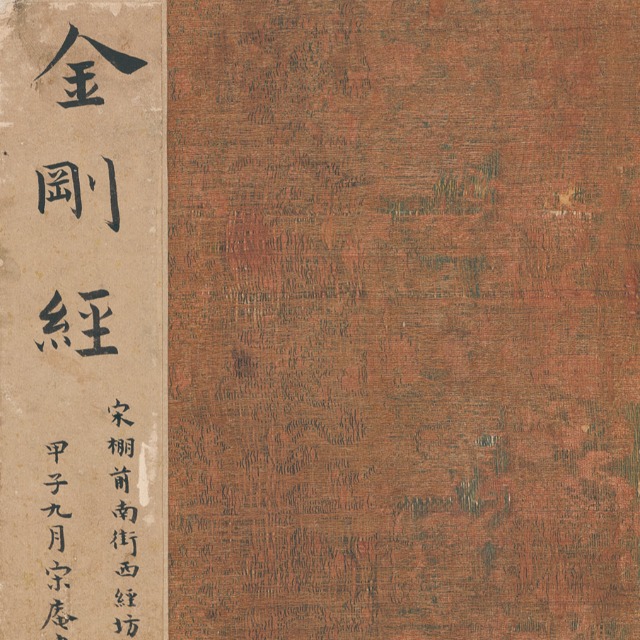 金剛經
宋棚前南街西經坊
甲子九月宗庵